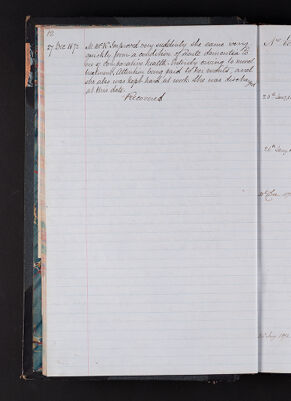 12.
27 Dec 1872 M. McK. Improved very suddenly she came very
quickly from a condition of Acute Dementia to
one of comparative health. Entirely owing to moral
treatment, attention being paid to her wants, and
she also was kept hard at work. She was discharged
at this date.
Recovered
No